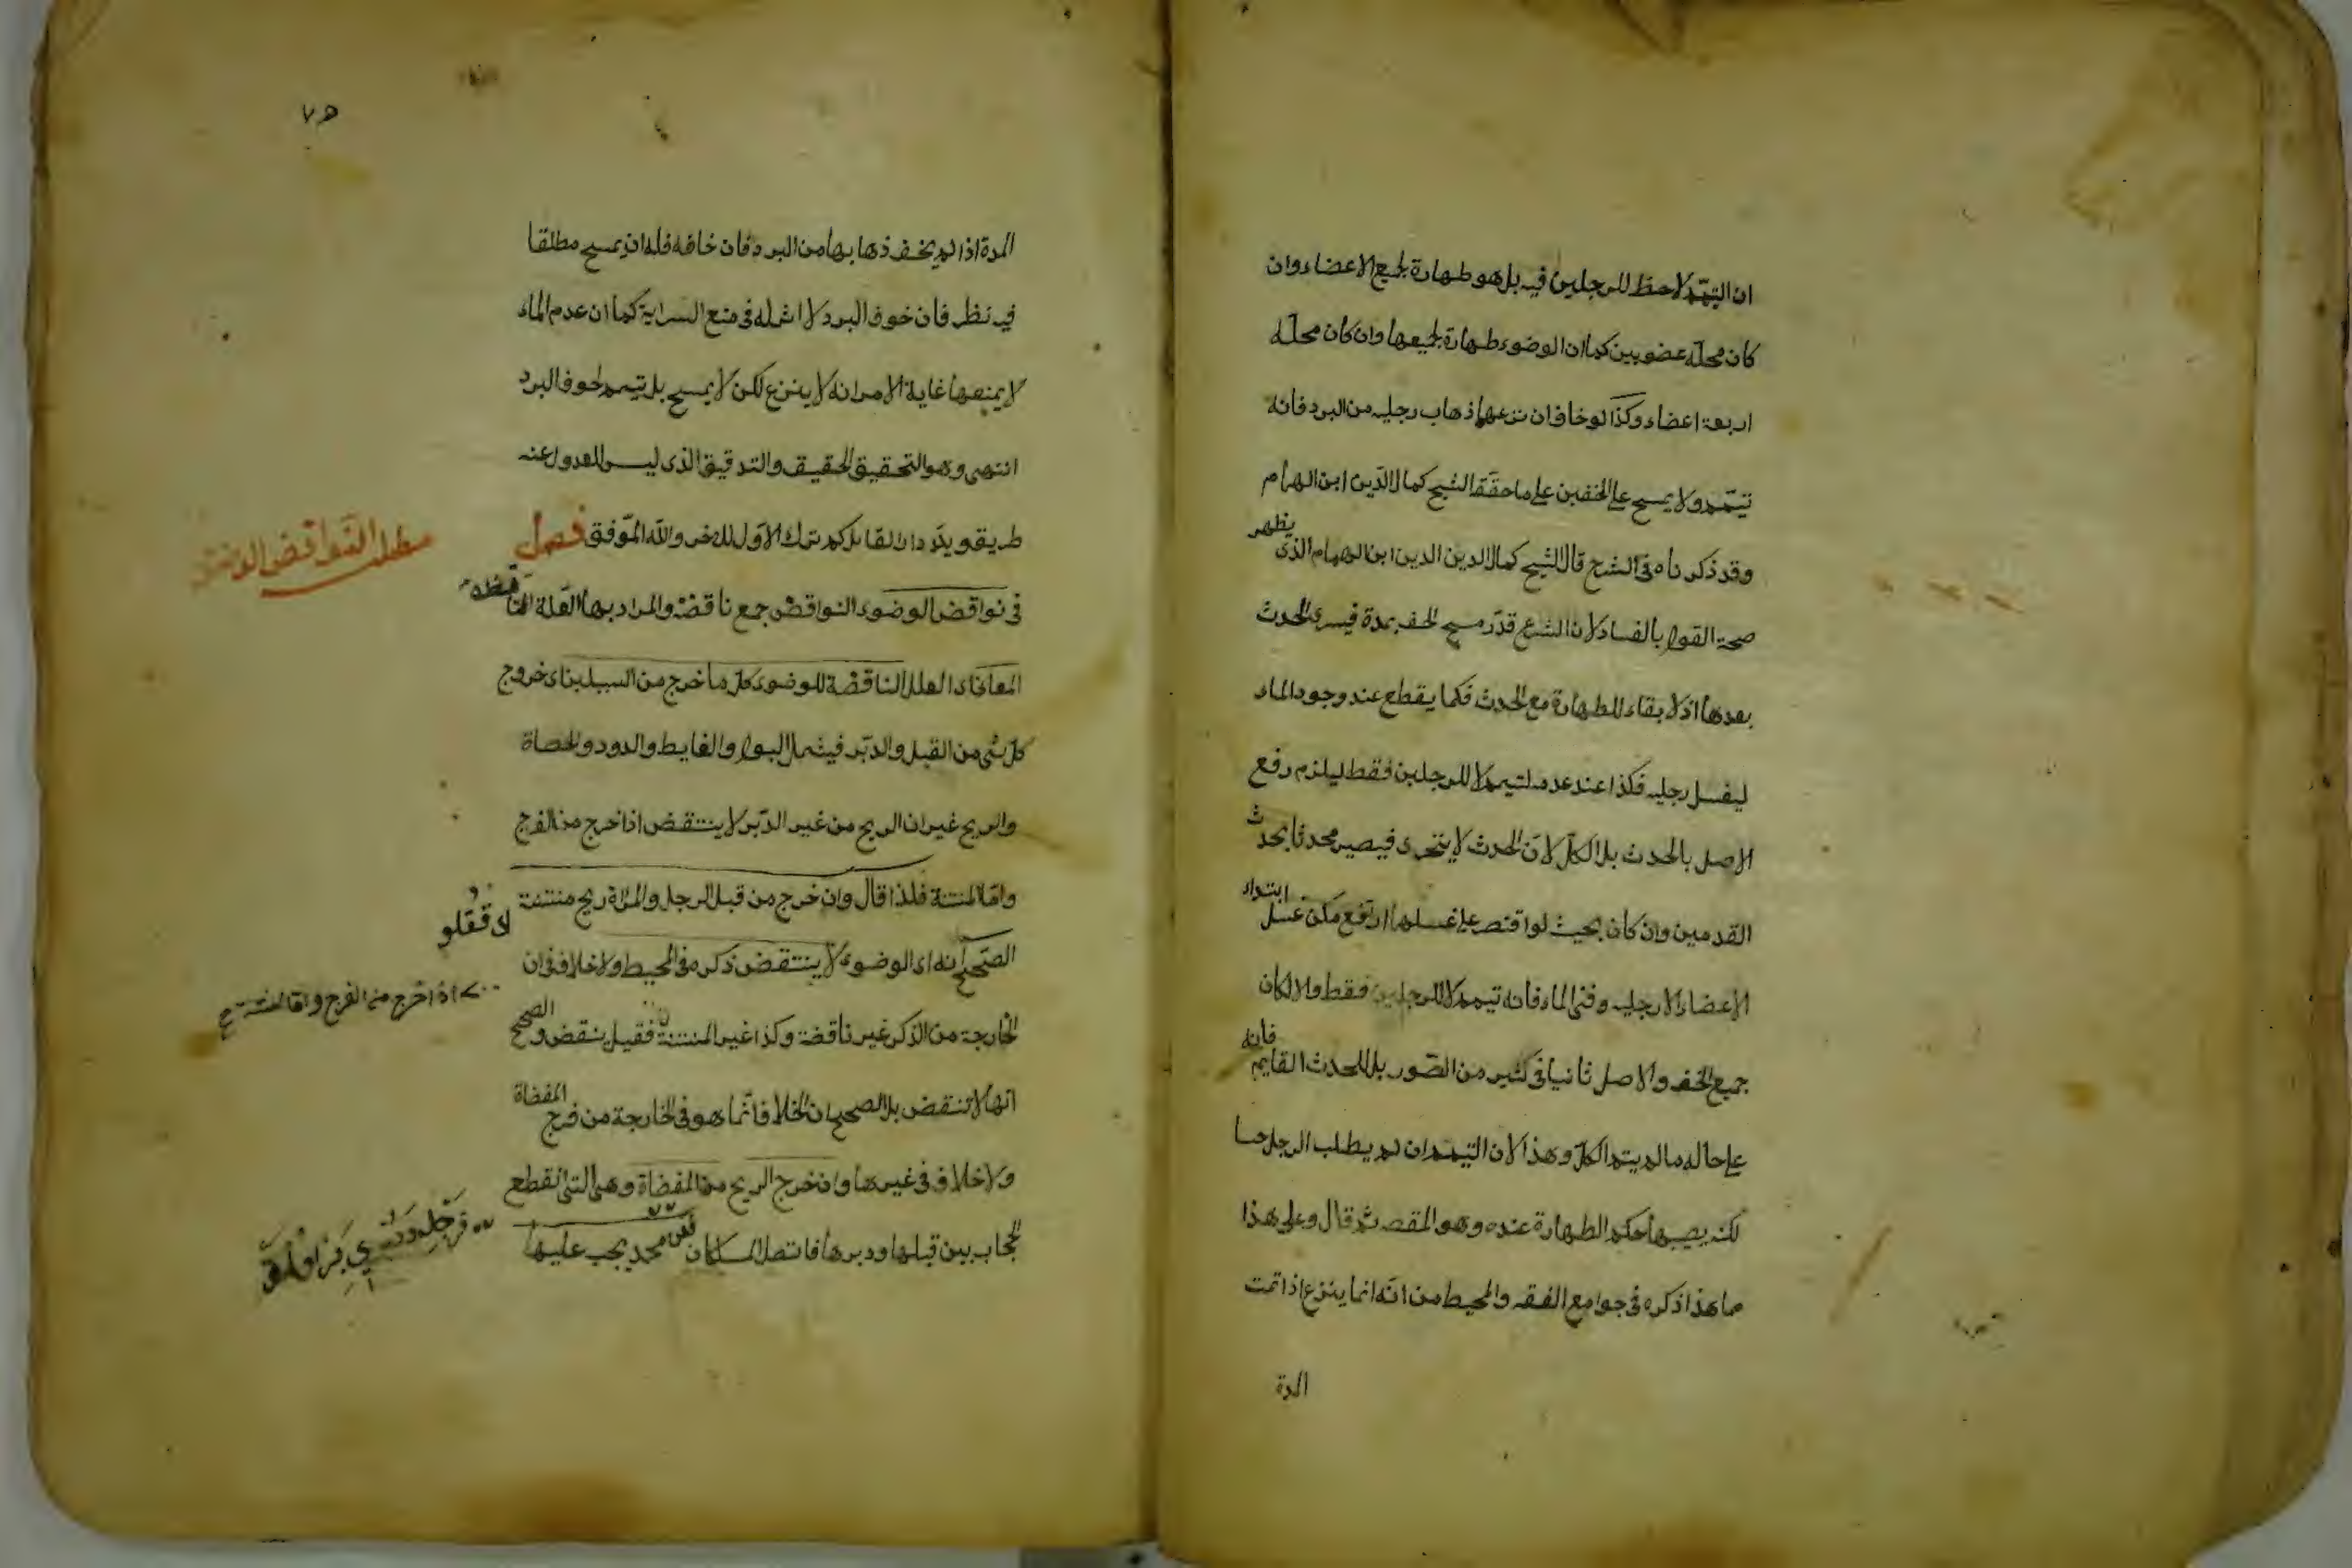 ان التيمّم لا حظ للرجلين فيه بل هو طهارة لجميع الاعضاء وان
كان محله عضويين كما ان الوضوء طهارة لجميعها وان كان محله
اربعة اعضاء وكذا لو خاف ان نزعها ذهاب رجليه من البرد فانه
تيمّم ولا يمسح على الخفين على ما حققه الشيخ كمال الدّين ابن الهمام
وقد ذكرناه في الشرح قال الشيخ كمال الدين الدين ابن الهمام الذى يظهر
صحة القول بالفساد لان الشرع قدّر مسح الخف بمدة فيسرى الحدث
بعدها اذ لا بقاء للطهارة مع الحدث فكما يقطع عند وجود الماء
ليغسل رجليه فكذا عند عدمه لتيمم لا للرجلين فقط ليلزم رفع
الاصل بالحدث بل الكل لانّ الحدث لا يتجزى فيصير محدثا بحدث
القدمين وان كان بحيث لو اقتصر على غسلها ارتفع كمن غسل ابتداء
الاعضاء الا رجليه وفنى الماء فانه تيمم لا للرجلين فقط والا لكان
جميع الخف والاصل ثانيا في كثير من الصّور بل للحدث القايم فانه
على حاله ما لم يتم الكلّ وهذا لان التيمم ان لم يطلب الرجل حسا
لكنه يصيبها حكم الطهارة عنده وهو المقصد ثم قال وعلى هذا
ما هذا ذكره في جوامع الفقه والمحيط من انه انما ينزع اذا تمت
المدة
٧٥
المدة اذا لم يخف ذهابها من البرد فان خافه فله ان يمسح مطلقا
فيه نظر فان خوف البرد لا اثر له في منع السراية كما ان عدم الماء
لا يمنعها غاية الامر انه لا ينزع لكن لا يمسح بل تيمم لخوف البرد
انتهى وهو التحقيق الحقيق والتدقيق الذى ليس للعدول عنه
طريق ويؤيد ان القايل كم ترك الاول للاخر والله الموّفق فصل
مطلب النّواقض الوضوء
في نواقض الوضوء النواقض جمع ناقضة والمراد بها العلة الناقضة
المعانى اى العلل الناقضة للوضوء كلّ ما خرج من السبيلين اى خروج
كلّ شئ من القبل والدبّر فيشمل البول والغايط والدود والحصاة
والريح غير ان الريح من غير الدّبر لا ينتقض اذا خرج من الفرج
وامّا المنتنة فلذا قال وان خرج من قبل الرجل والمراة ريح منتنة
الصّحيح انه اى الوضوء لا ينتقض ذكره في المحيط ولا خلاف في ان
اذا خرج من الفرج واما المنتنة
الخارجة من الذّكر غير ناقضة وكذا غير المنتنة فقيل ينقض والصحيح
انها لا تنقض بل الصحيح ان الخلاف انّما هو في الخارجة من فرج المفضاة
ولا خلاف في غيرها وان خرج الريح من المفضاة وهى التى انقطع
الحجاب بين قبلها ودبرها فاتصل المسلكان محمد يجب عليها